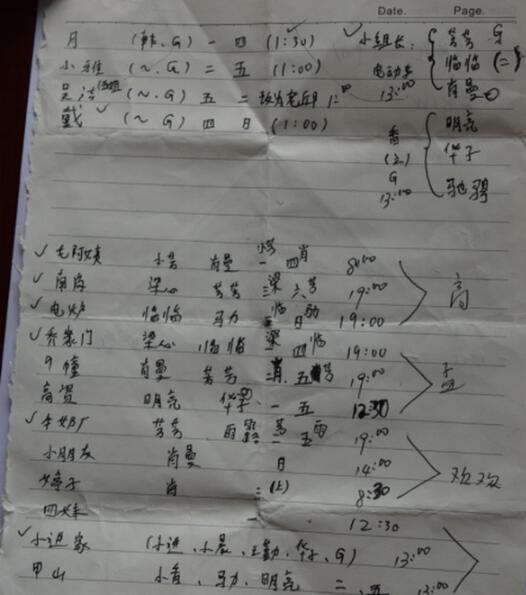 Date. Page.
月 (韩、G) 一 四 (1:30) ✓小组长: 芳芳 G
小雅 (~、G) 二 五 (1:00) 电动车 临临 (二)
(~、G) 五 二 13:00 肖曼
戴 ✓ (~ G) 四 日 (1:00) 明亮
香 (之) G 13:00 华子
✓毛阿姨 小芳 肖曼 一 四肖 8:00
✓南岗 梁心 芳芳 三梁 六芳 19:00 高
✓电炉 临临 马力 日 19:00
✓乔家门 梁心 临临 梁二 四临 19:00
9幢 肖曼 芳芳 五芳 19:00 孟
高贤 明亮 华子 一 五 12:30
✓牛奶厂 芳芳 雨露 二 五雨 19:00
小朋友 肖曼 日 14:00 欢欢
婷子 肖 二(上) 8:30
四妹 一 12:30
✓小进家 (小进、小晨、王勤、华子、G) 13:00
甲山 小香、马力、明亮 二、五 13:00